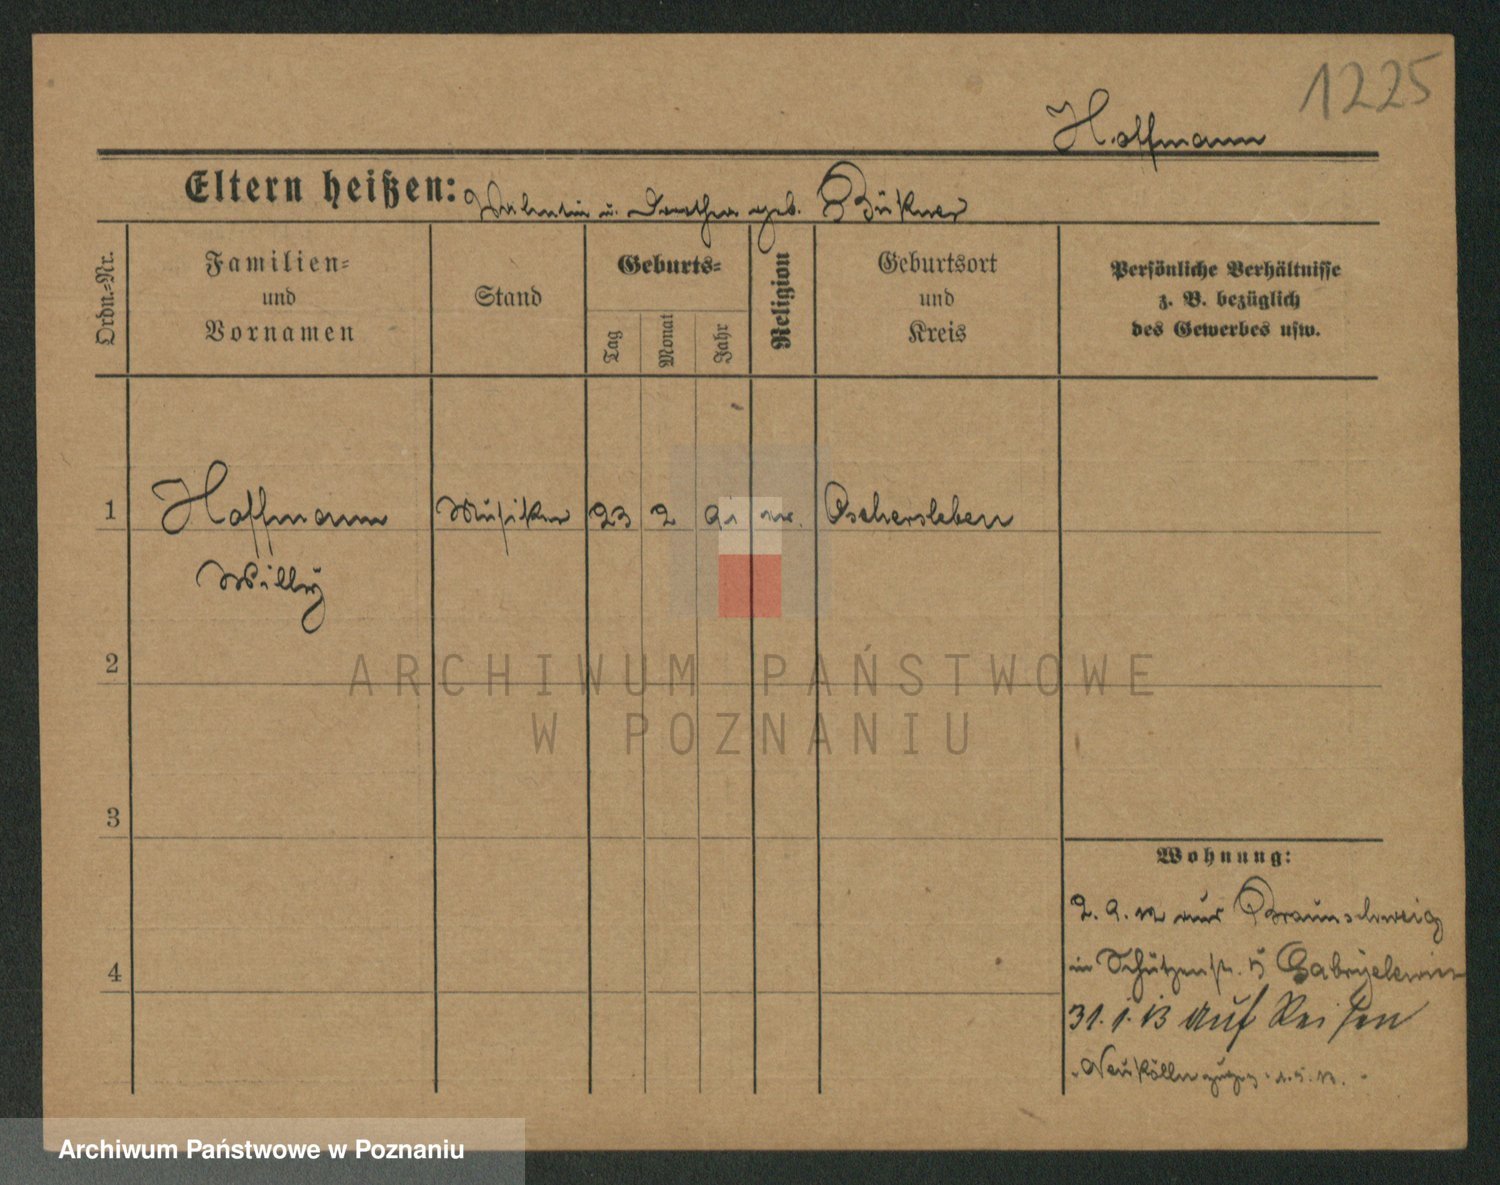 1225
Hoffmann
Eltern heißen: Valentin u. Dorothea geb. Bückner
Ordn.-Nr.
Familien- und Vornamen
Stand
Geburts-
Tag
Monat
Jahr
Religion
Geburtsort und Kreis
Persönliche Verhältnisse z. B. bezüglich des Gewerbes usw.
1 Hoffmann Musiker 23 2 91 ev. Oschersleben
Willy
2
3
4
Wohnung:
2. 9. 12 aus Braunschweig
in Schützenstr. 5 Gabryelewicz
31. 1. 13 auf Reisen
Neukölln
ARCHIWUM PAŃSTWOWE
W POZNANIU
Archiwum Państwowe w Poznaniu